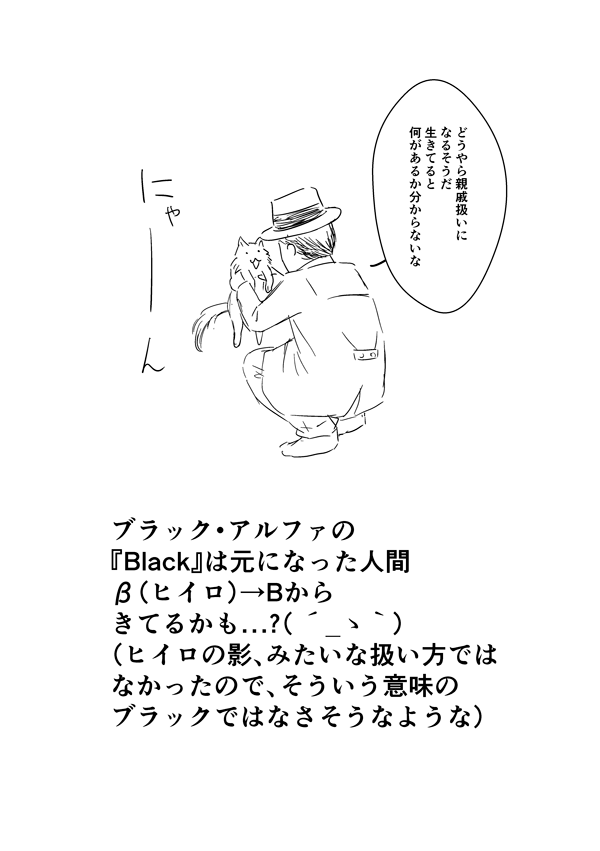 どうやら親戚扱いに
なるそうだ
生きてると
何があるか分からないな
にゃーーん
ブラック・アルファの
『Black』は元になった人間
β（ヒイロ）→Bから
きてるかも…?( ´_ゝ｀)
（ヒイロの影、みたいな扱い方では
なかったので、そういう意味の
ブラックではなさそうなような）